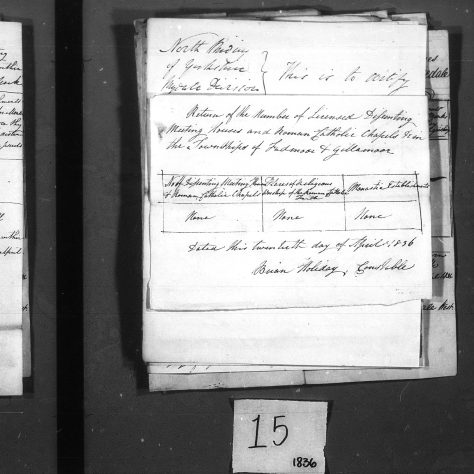 North Riding
of Yorkshire
Ryvale Division
} This is to certify
Return of the Number of Licensed Dissenting
Meeting Houses and Roman Catholic Chapels &c in
the Townships of Fadmoor & Gillamoor
No of Dissenting Meeting Houses & Roman Catholic Chapels
Places of Religious Worship of the Roman Catholic Faith
Monastic Establishments
None None None
Dated this twentieth day of April 1836
Brian Holiday, Constable
15
1836